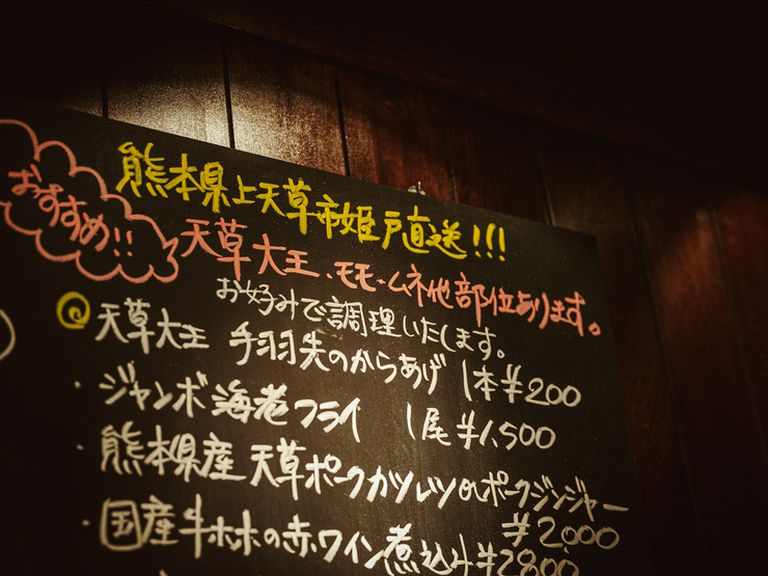 おすすめ!!
熊本県上天草市姫戸直送!!!
天草大王、モモ・ムネ他部位あります。
お好みで調理いたします。
天草大王 手羽先のからあげ 1本¥200
・ジャンボ海老フライ 1尾¥1,500
・熊本県産天草ポークカツレツorポークジンジャー
¥2,000
・国産牛ホホの赤ワイン煮込み¥2800